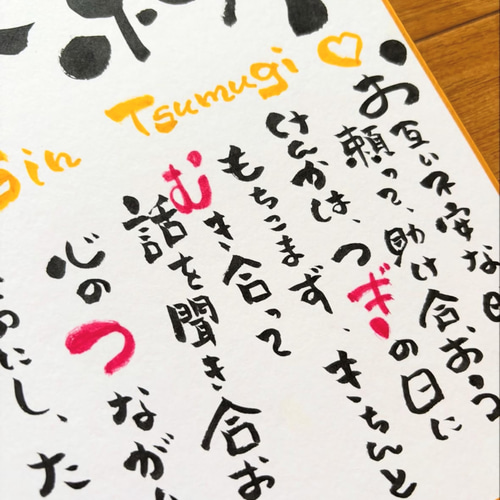 Tsumugi ♡
sin
お互い不安な
頼って、助け合おう
けんかは、つぎの日に
もちこまず、きちんと
むき合って
話を聞き合お
心のつなが
にし、た